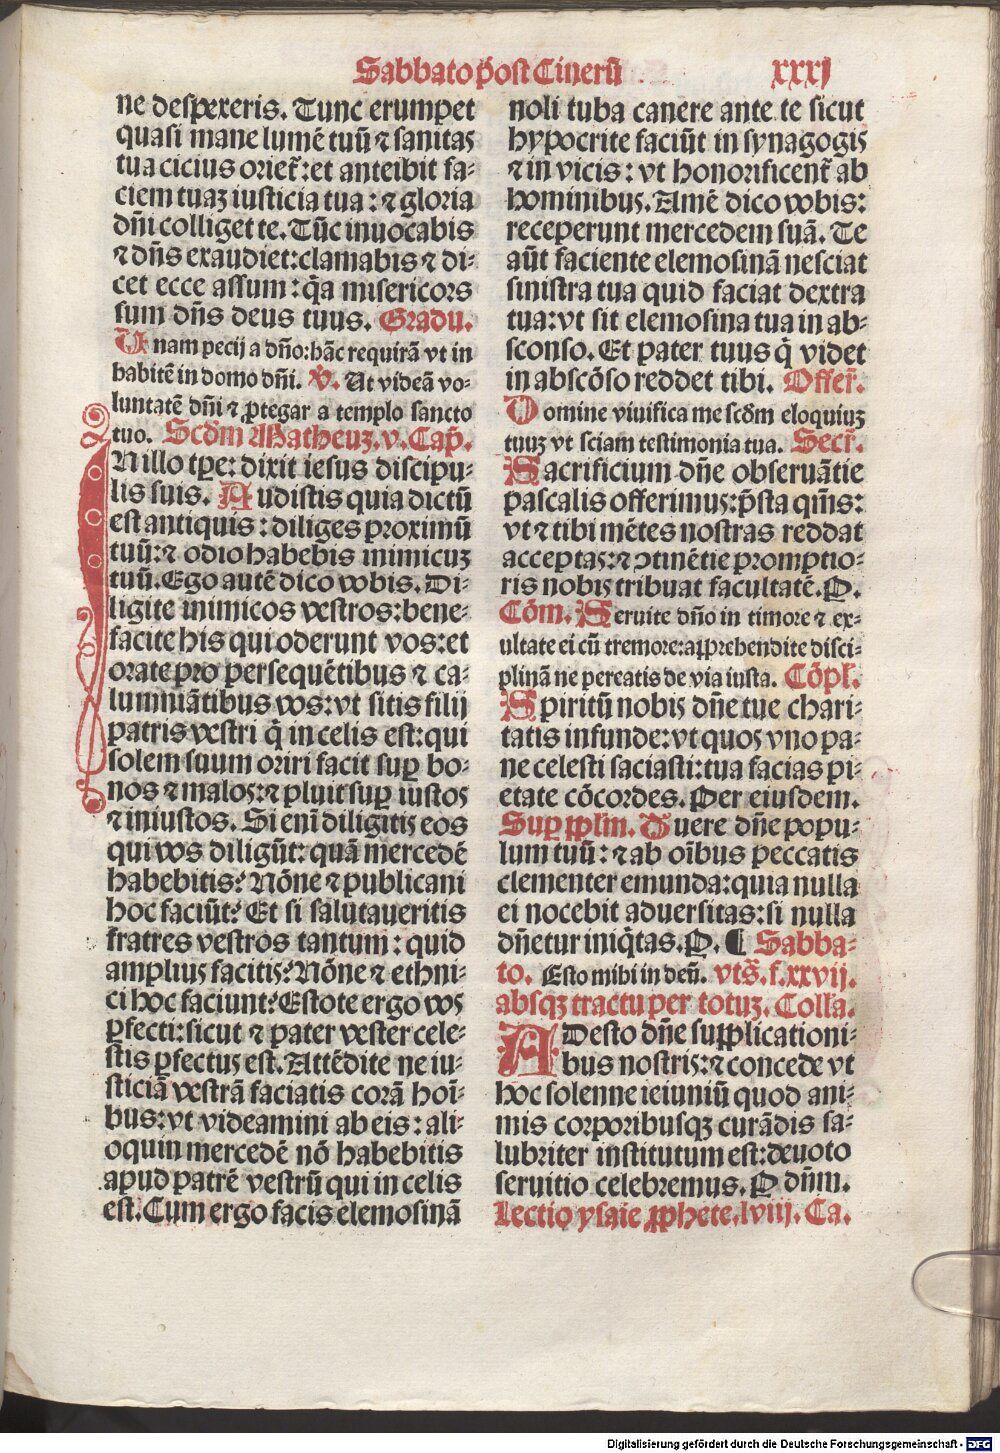 Sabbato p̄ost Cinerū xxxj
ne despexeris. Tunc erumpet
quasi mane lumē tuū ⁊ sanitas
tua cicius orieť: et anteibit fa⸗
ciem tuaꝫ iusticia tua: ⁊ gloria
dn̄i colliget te. Tūc inuocabis
⁊ dn̄s exaudiet: clamabis ⁊ di⸗
cet ecce assum: q̄a misericors
sum dn̄s deus tuus. Gradu.
Unam pecij a dn̄o: hāc requirā vt in
habitē in domo dn̄i. ℣. Ut videā vo⸗
luntatē dn̄i ⁊ ꝓtegar a templo sancto
tuo. Scd̄m Matheuꝫ. v. Cap̄.
IN illo tꝑe: dixit iesus discipu⸗
lis suis. Audistis quia dictū
est antiquis: diliges proximū
tuū: ⁊ odio habebis inimicuꝫ
tuū. Ego autē dico vobis. Di⸗
ligite inimicos vestros: bene⸗
facite his qui oderunt vos: et
orate pro persequētibus ⁊ ca⸗
lumniātibus vos: vt sitis filij
patris vestri q̄ in celis est: qui
solem suum oriri facit suꝑ bo⸗
nos ⁊ malos: ⁊ pluit suꝑ iustos
⁊ iniustos. Si enī diligitis eos
qui vos diligūt: quā mercedē
habebitis? Nōne ⁊ publicani
hoc faciūt? Et si salutaueritis
fratres vestros tantum: quid
amplius facitis? Nōne ⁊ ethni⸗
ci hoc faciunt? Estote ergo vos
ꝑfecti: sicut ⁊ pater vester cele⸗
stis ꝑfectus est. Attēdite ne iu⸗
sticiā vestrā faciatis corā hoī⸗
bus: vt videamini ab eis: ali⸗
oquin mercedē nō habebitis
apud patrē vestrū qui in celis
est. Cum ergo facis elemosinā
noli tuba canere ante te sicut
hypocrite faciūt in synagogis
⁊ in vicis: vt honorificenť ab
hominibus. Amē dico vobis:
receperunt mercedem suā. Te
aūt faciente elemosinā nesciat
sinistra tua quid faciat dextra
tua: vt sit elemosina tua in ab⸗
sconso. Et pater tuus q̄ videt
in abscōso reddet tibi. Offer̄.
Domine viuifica me scd̄m eloquiuꝫ
tuuꝫ vt sciam testimonia tua. Secr̄.
Sacrificium dn̄e obseruātie
pascalis offerimus: p̄sta qm̄s:
vt ⁊ tibi mētes nostras reddat
acceptas: ⁊ ↄtinētie promptio⸗
ris nobis tribuat facultatē. P.
Cōm. Seruite dn̄o in timore ⁊ ex⸗
ultate ei cū tremore: apprehendite disci⸗
plinā ne pereatis de via iusta. Cōpl.
Spiritū nobis dn̄e tue chari⸗
tatis infunde: vt quos vno pa⸗
ne celesti saciasti: tua facias pi⸗
etate cōcordes. Per eiusdem.
Suꝑ ꝓplm. Tuere dn̄e popu⸗
lum tuū: ⁊ ab oībus peccatis
clementer emunda: quia nulla
ei nocebit aduersitas: si nulla
dn̄etur iniq̄tas. P. ¶ Sabba⸗
to. Esto mihi in deū. vts̄. f. xxvij.
absqꝫ tractu per totuꝫ. Colla.
ADesto dn̄e supplicationi⸗
bus nostris: ⁊ concede vt
hoc solenne ieiuniū quod ani⸗
mis corporibusqꝫ curādis sa⸗
lubriter institutum est: deuoto
seruitio celebremus. P dn̄m.
Lectio ysaie ꝓphete. lviij. Ca.
Digitalisierung gefördert durch die Deutsche Forschungsgemeinschaft - DFG